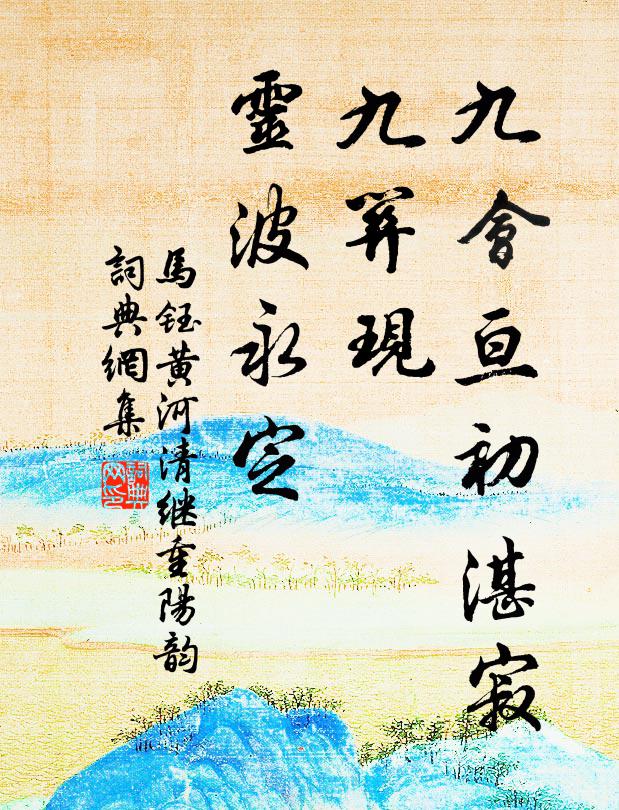 九會亘初湛寂
九現
靈波永定
馬鈺黄河清继重陽韵
詞典網集